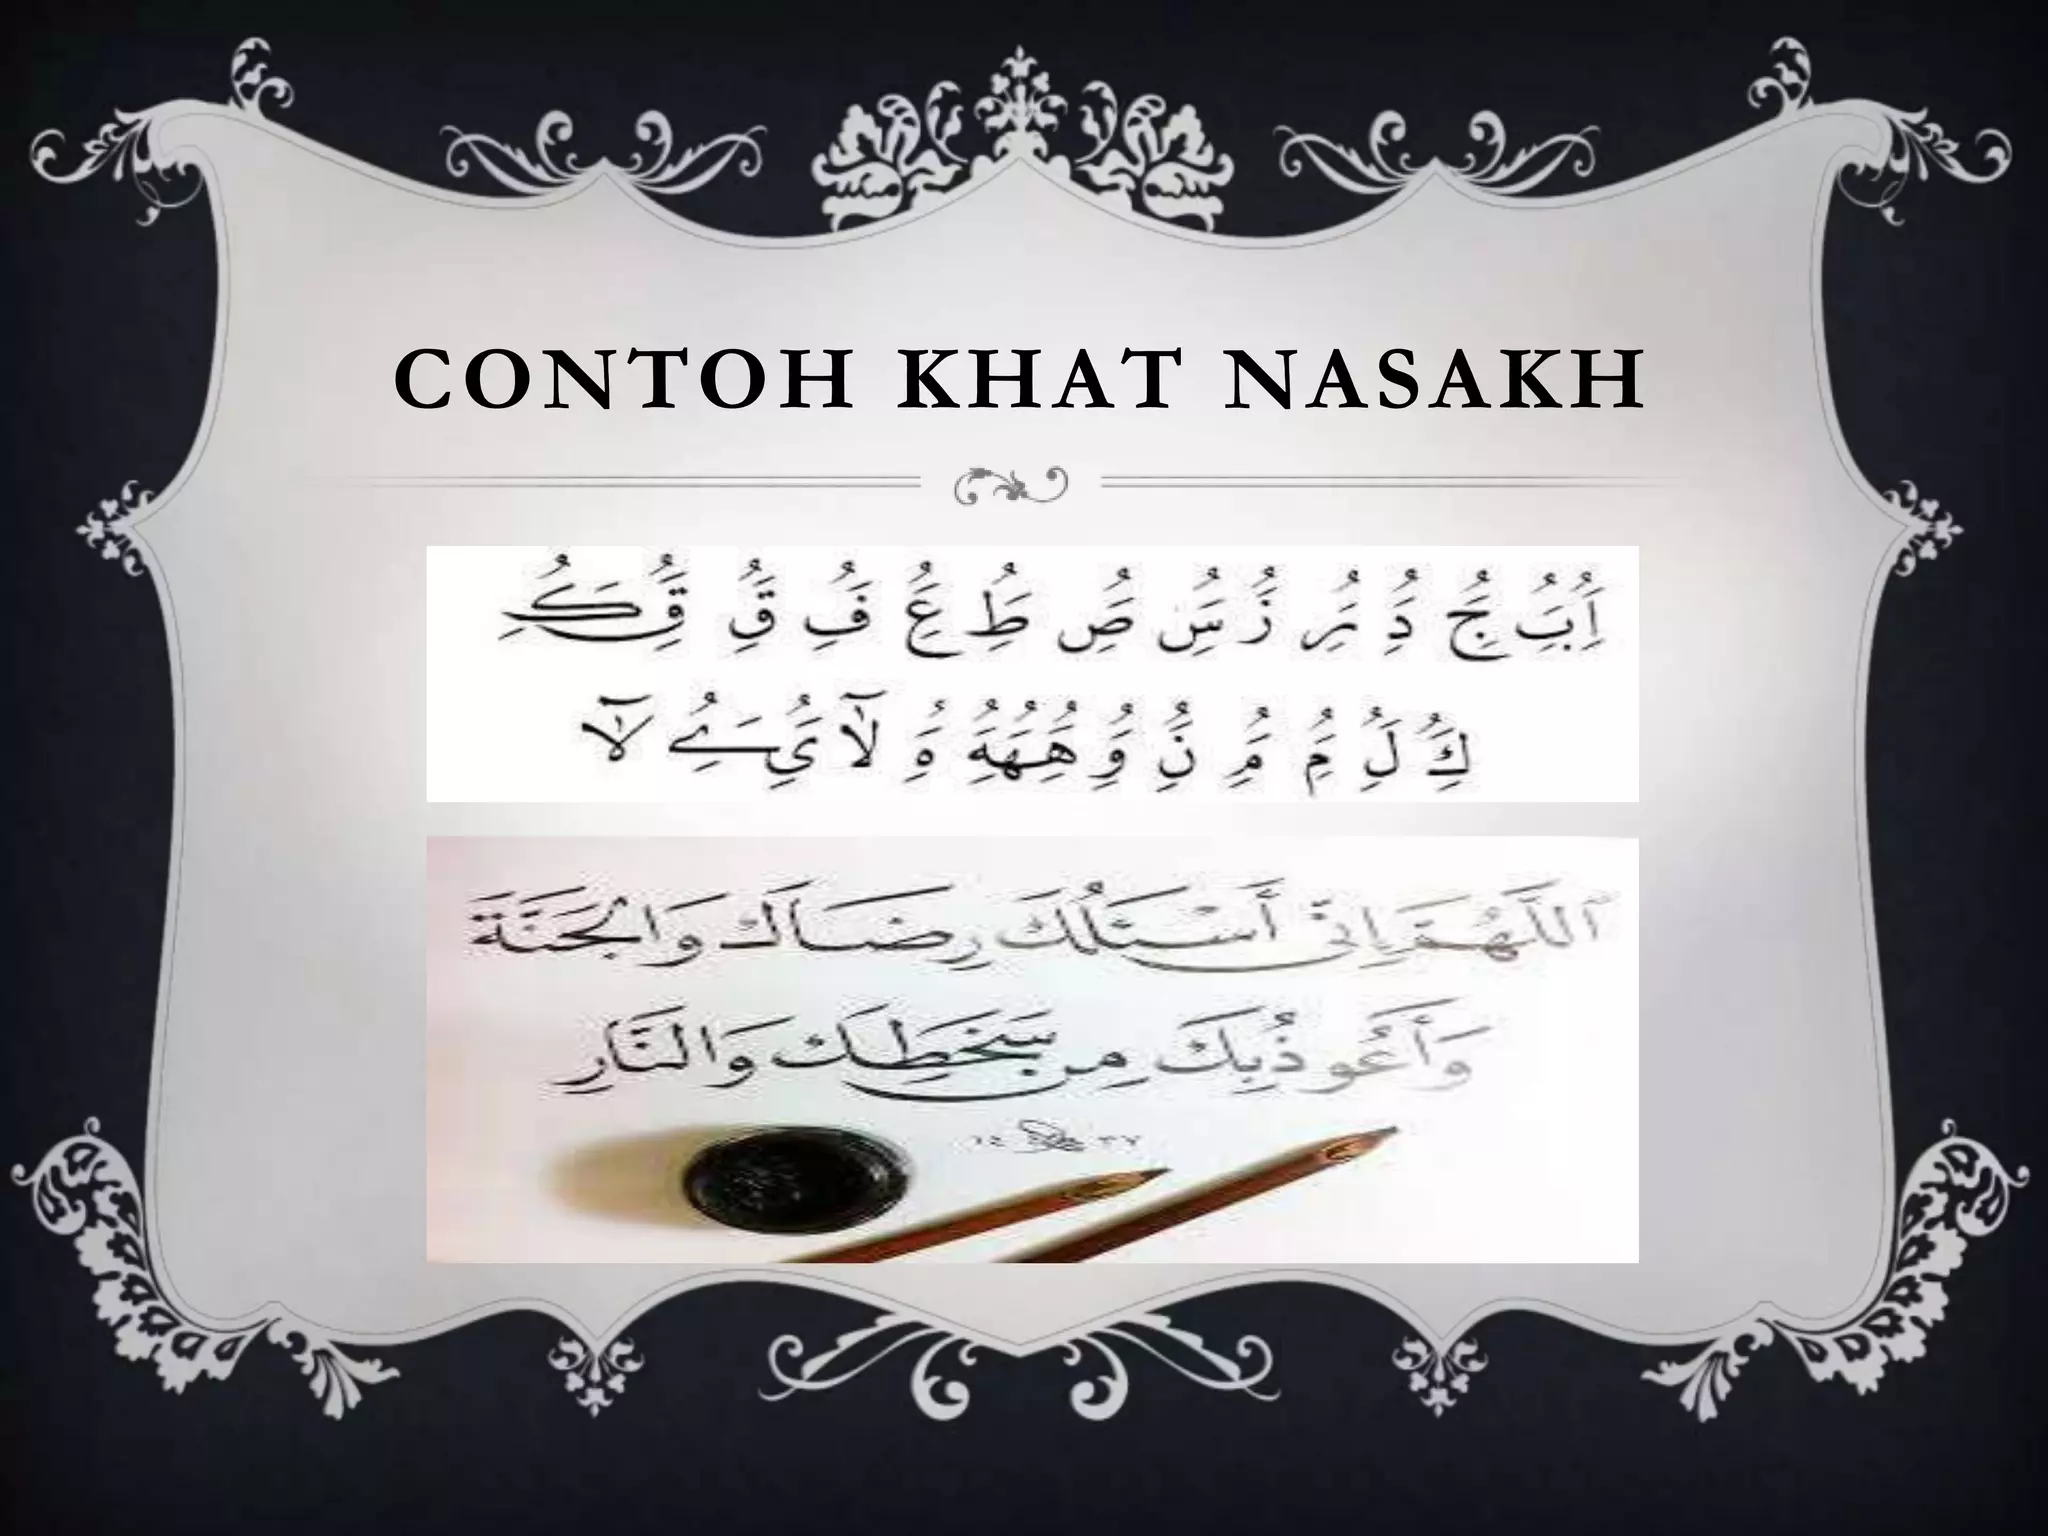 CONTOH KHAT NASAKH
اَُِ بَُِ جَُِ دَُِ رَُِ زَُ سَُِ صَُِ طَُِ عَُِ فَُِ قَُِ قَُِ كَُِ
كَُِ لَُِ مَُِ مَُِ نَُِ وَُِ هَُِهَُِهَُِ هَُِ لآ يَُِ يَُِ لآ
اَللَّهُمَّ اِنِّى أَسْئَلُكَ رِضَاكَ وَالْجَنَّةَ
وَأَعُوذُبِكَ مِن سَخَطِكَ وَالنَّارِ
١٤ ٣٧